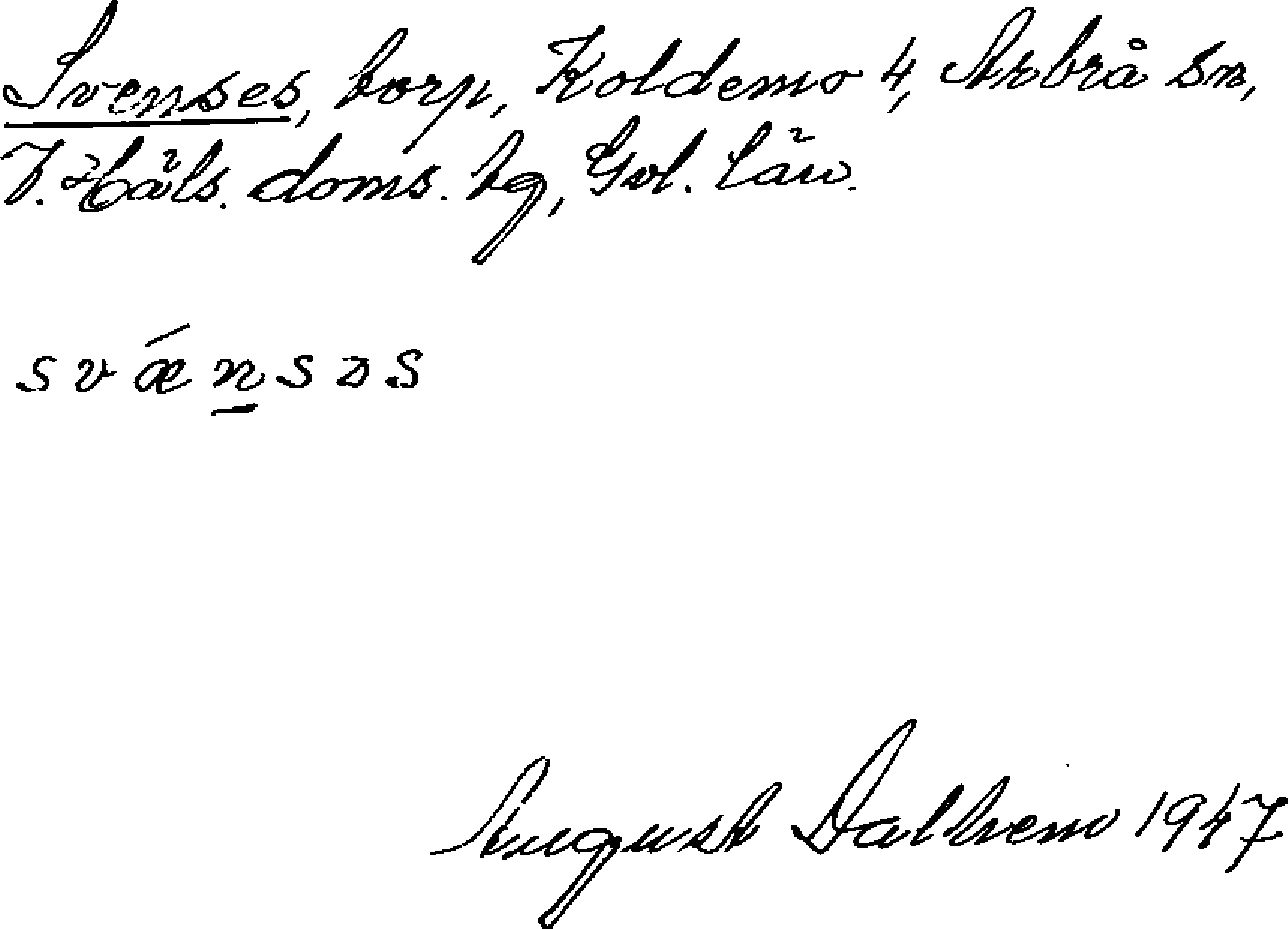 Svenses, torp, Koldemo 4, Arbrå sn,
V. Häls. doms. tg, Gvl. län.
svǽn̲səs
August Dalhem 1947